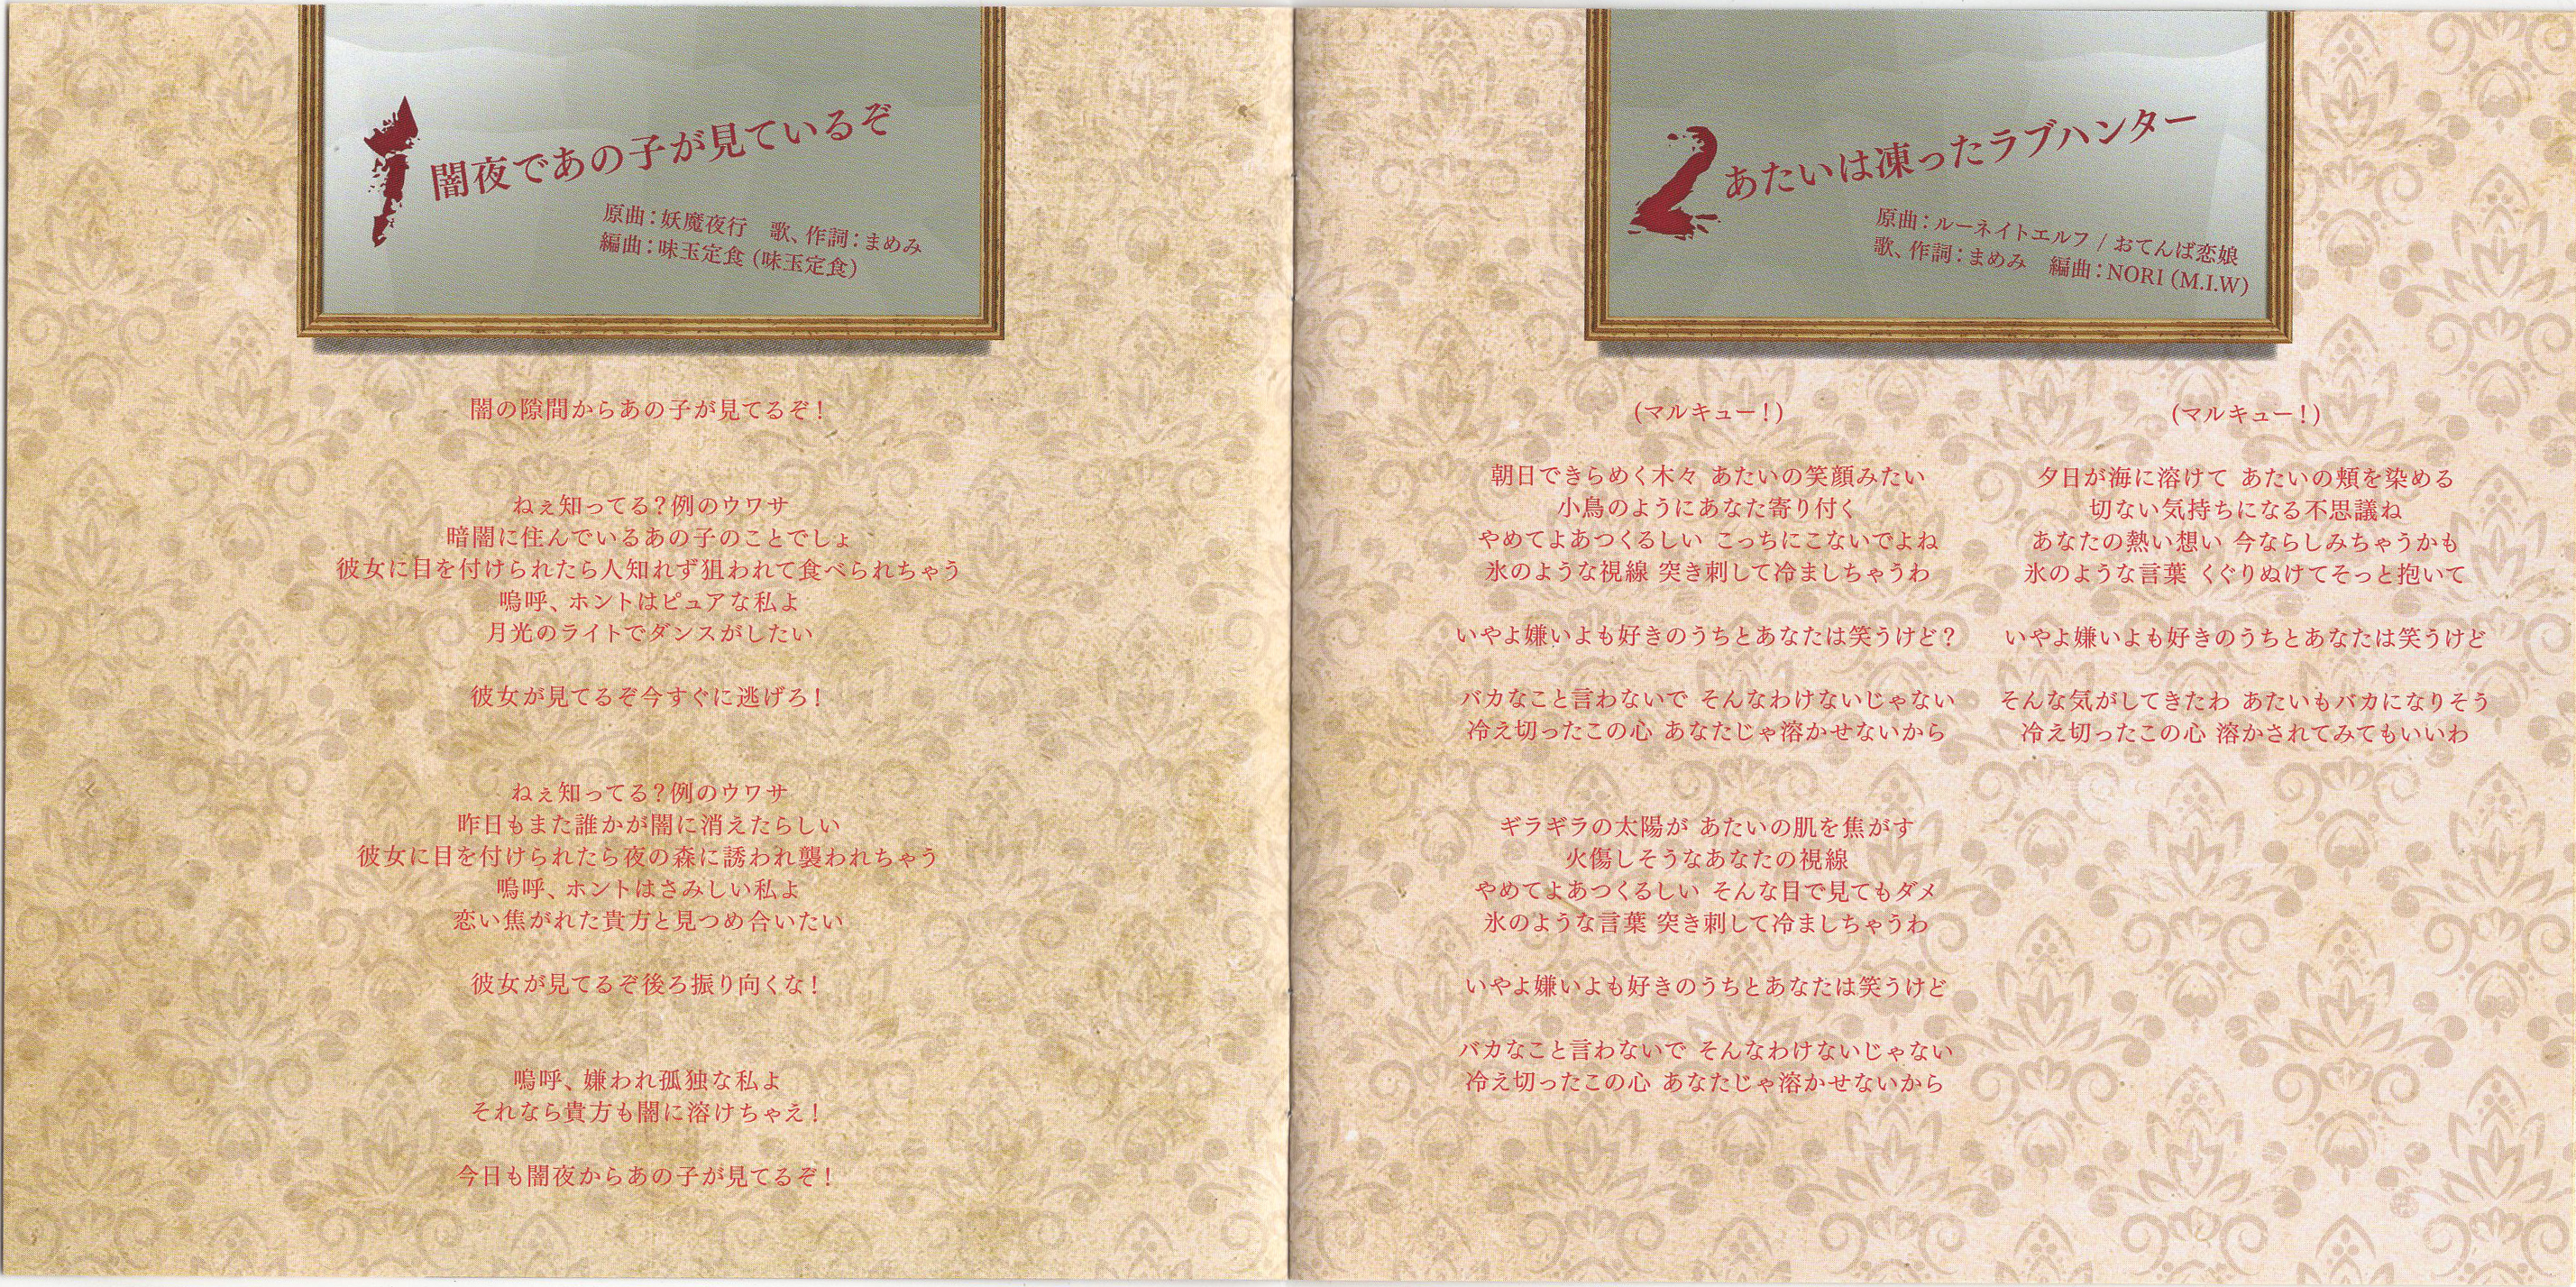 1 闇夜であの子が見ているぞ
原曲：妖魔夜行　歌、作詞：まめみ
編曲：味玉定食 (味玉定食)
闇の隙間からあの子が見てるぞ！
ねぇ知ってる？例のウワサ
暗闇に住んでいるあの子のことでしょ
彼女に目を付けられたら人知れず狙われて食べられちゃう
嗚呼、ホントはピュアな私よ
月光のライトでダンスがしたい
彼女が見てるぞ今すぐに逃げろ！
ねぇ知ってる？例のウワサ
昨日もまた誰かが闇に消えたらしい
彼女に目を付けられたら夜の森に誘われ襲われちゃう
嗚呼、ホントはさみしい私よ
恋い焦がれた貴方と見つめ合いたい
彼女が見てるぞ後ろ振り向くな！
嗚呼、嫌われ孤独な私よ
それなら貴方も闇に溶けちゃえ！
今日も闇夜からあの子が見てるぞ！
2 あたいは凍ったラブハンター
原曲：ルーネイトエルフ / おてんば恋娘
歌、作詞：まめみ　編曲：NORI (M.I.W)
(マルキュー！)
朝日できらめく木々 あたいの笑顔みたい
小鳥のようにあなた寄り付く
やめてよあつくるしい こっちにこないでよね
氷のような視線 突き刺して冷ましちゃうわ
いやよ嫌いよも好きのうちとあなたは笑うけど？
バカなこと言わないで そんなわけないじゃない
冷え切ったこの心 あなたじゃ溶かせないから
ギラギラの太陽が あたいの肌を焦がす
火傷しそうなあなたの視線
やめてよあつくるしい そんな目で見てもダメ
氷のような言葉 突き刺して冷ましちゃうわ
いやよ嫌いよも好きのうちとあなたは笑うけど
バカなこと言わないで そんなわけないじゃない
冷え切ったこの心 あなたじゃ溶かせないから
(マルキュー！)
夕日が海に溶けて あたいの頬を染める
切ない気持ちになる不思議ね
あなたの熱い想い 今ならしみちゃうかも
氷のような言葉 くぐりぬけてそっと抱いて
いやよ嫌いよも好きのうちとあなたは笑うけど
そんな気がしてきたわ あたいもバカになりそう
冷え切ったこの心 溶かされてみてもいいわ